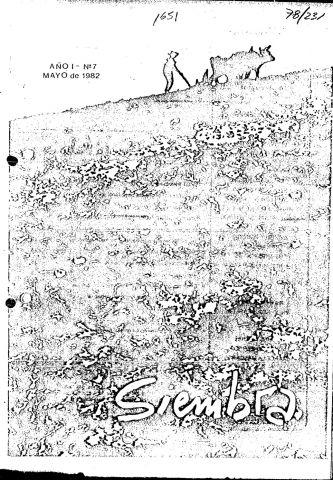 1651
78/231
AÑO I - Nº7
MAYO de 1982
Siembra.